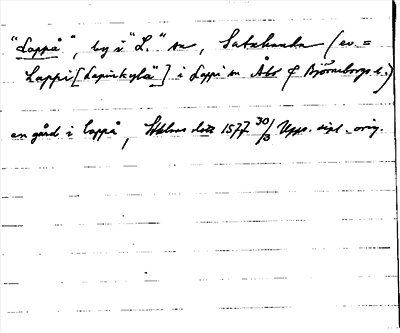 "Lappå", by i "L." sn, Satakunda (ev. =
Lappi [Lapinkylä"] i Lappi sn Åbo o Björneborgs l.)
en gård i Lappå, Sthlms slott 1577 30/3 Upps. dipl. orig.